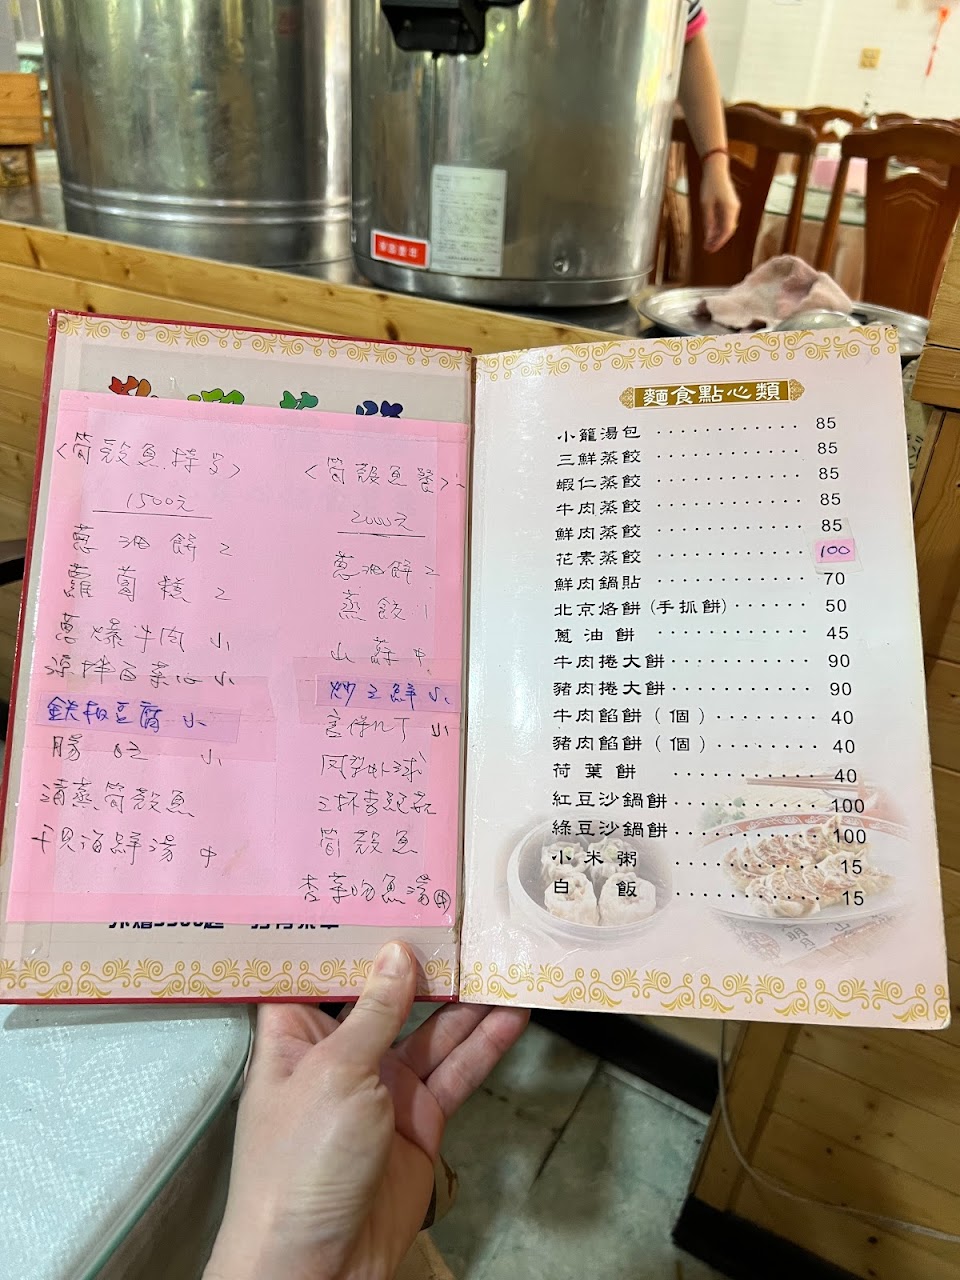 <筍殼魚特号>
1500元
蔥油餅 2
蘿蔔糕 2
蔥爆牛肉 小
涼拌白菜心 小
鉄板豆腐 小
腸旺 小
清蒸筍殼魚
干貝海鮮湯 中
<筍殼魚餐>
2000元
蔥油餅 2
蒸餃 1
山蘇 中
炒三鮮 小
宮保丁 小
球
三杯杏鮑菇
筍殼魚
杏菜吻魚羹
麵食點心類
小籠湯包 ············ 85
三鮮蒸餃 ············ 85
蝦仁蒸餃 ············ 85
牛肉蒸餃 ············ 85
鮮肉蒸餃 ············ 85
花素蒸餃 ············ 100
鮮肉鍋貼 ············ 70
北京烙餅(手抓餅) ······ 50
蔥油餅 ············ 45
牛肉捲大餅 ··········· 90
豬肉捲大餅 ··········· 90
牛肉餡餅(個) ········ 40
豬肉餡餅(個) ········ 40
荷葉餅 ············ 40
紅豆沙鍋餅 ············ 100
綠豆沙鍋餅 ············ 100
小米粥 ············ 15
白飯 ············ 15